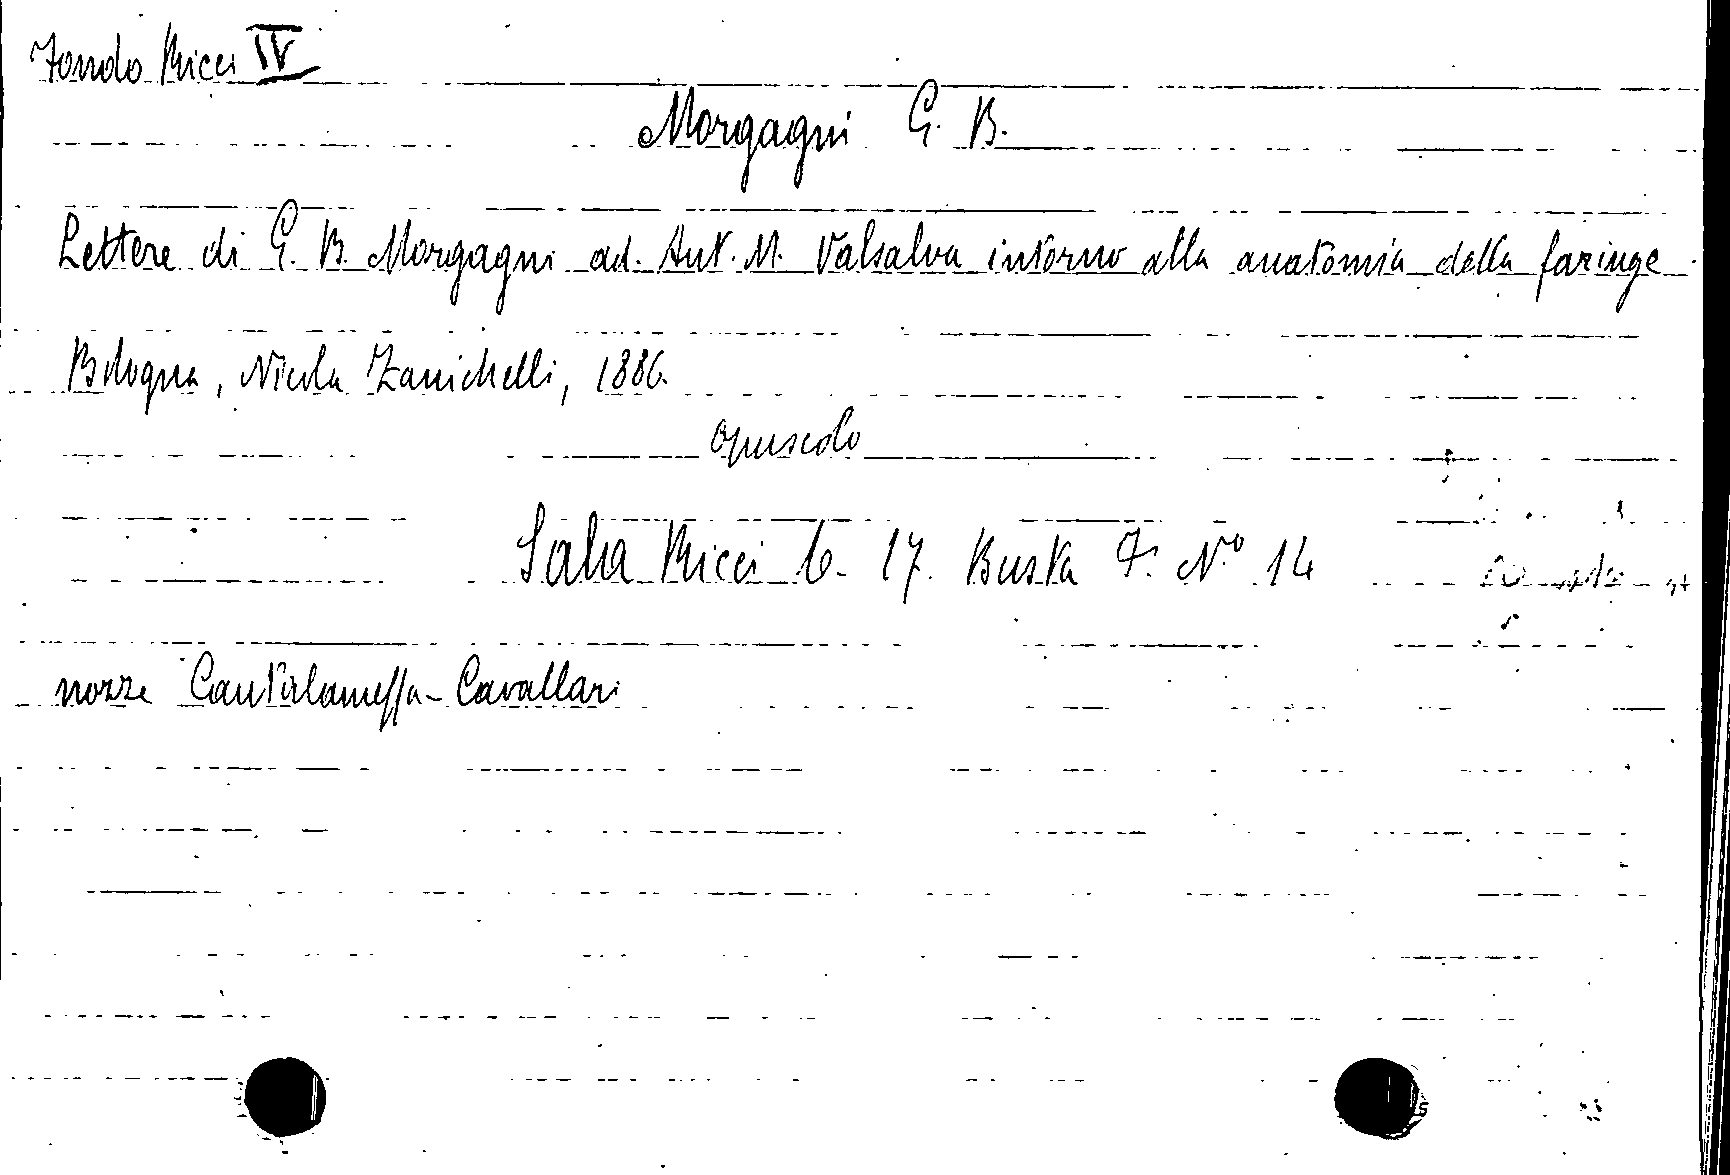 Fondo Ricci IV
Morgagni G. B.
Lettere di G. B. Morgagni ad. Ant. M. Valsalva intorno alla anatomia della faringe.
Bologna, Nicola Zanichelli, 1886.
opuscolo
Sala Ricci 6. 17. Busta F. N.º 14
nozze Cantalamessa-Cavallari